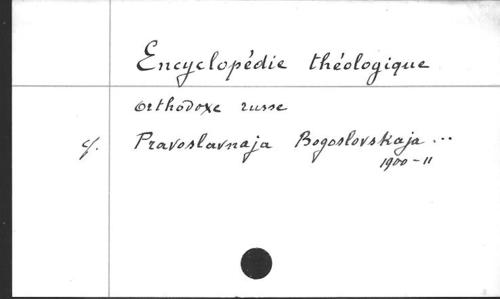 Encyclopédie théologique
orthodoxe russe
cf. Pravoslavnaja Bogoslovskaja ...
1900-11